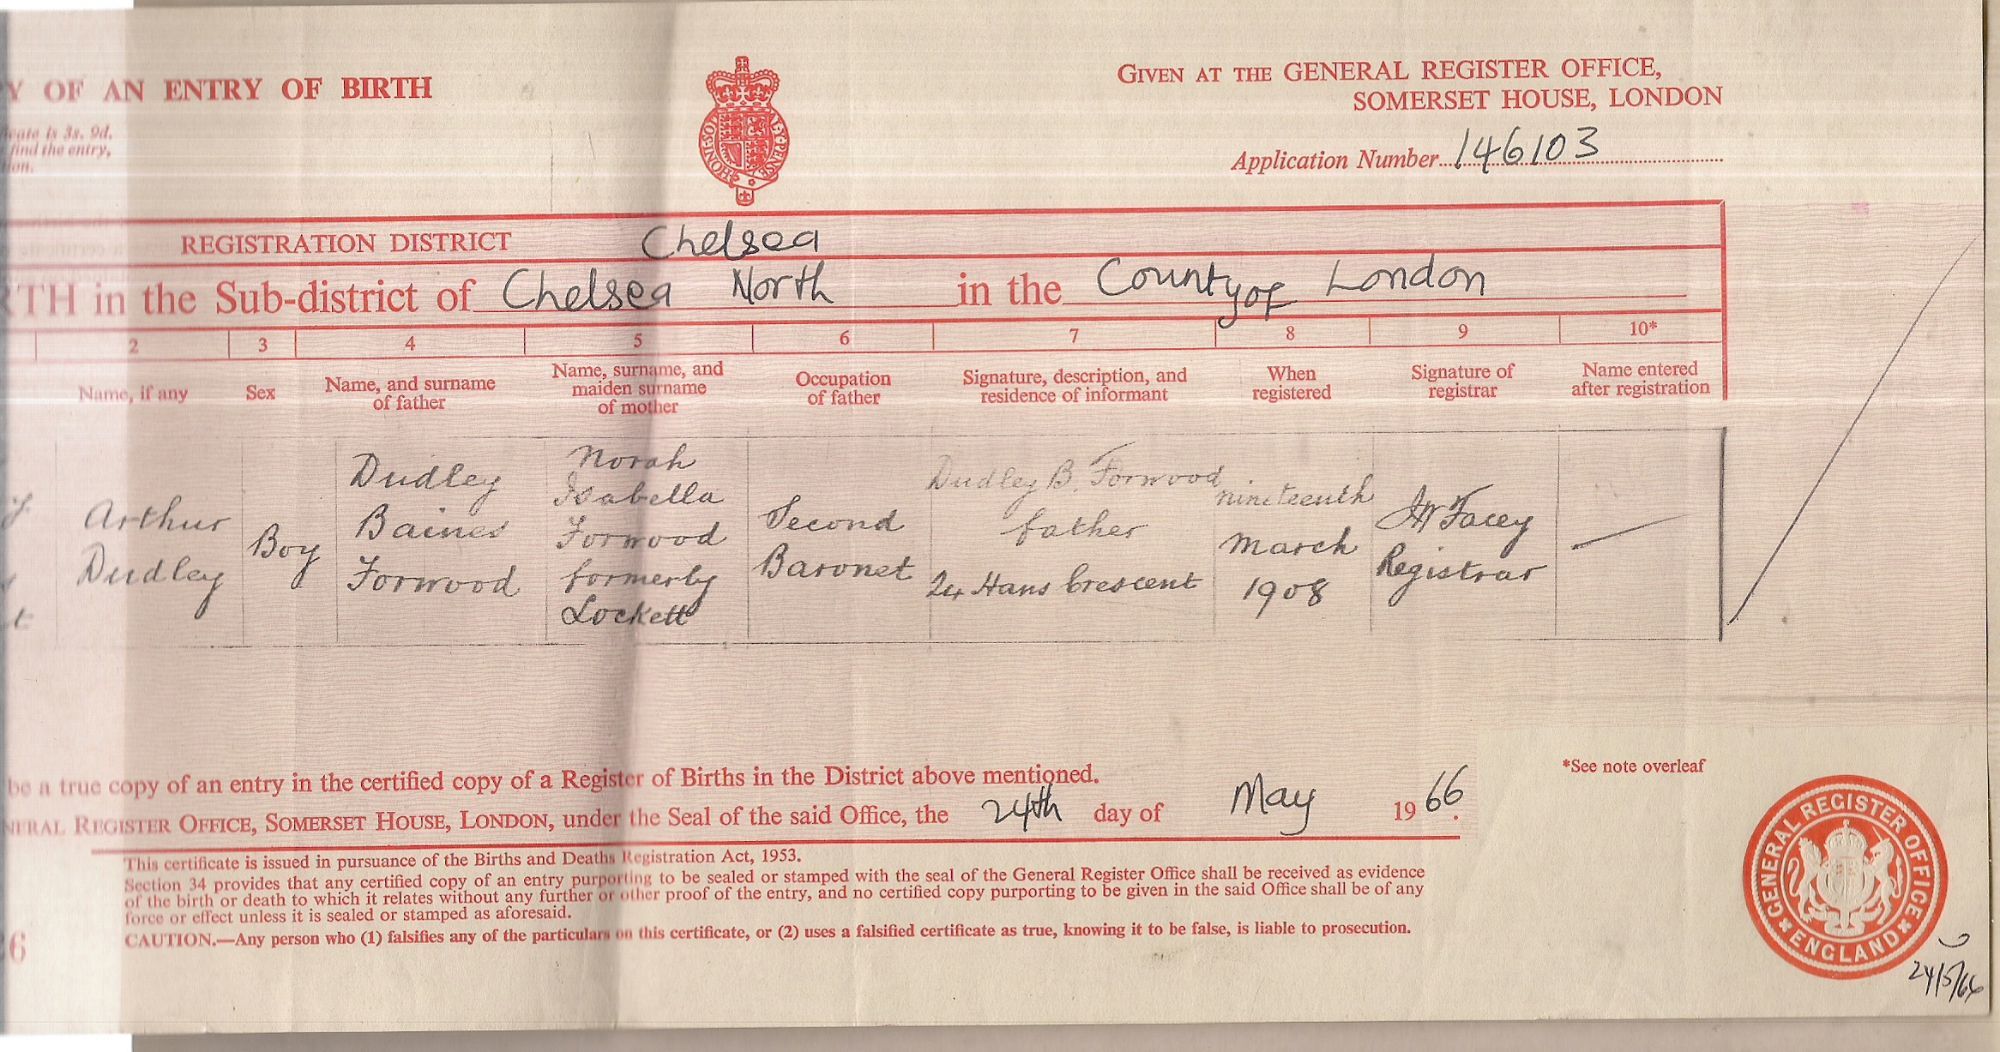 Y OF AN ENTRY OF BIRTH
GIVEN AT THE GENERAL REGISTER OFFICE,
SOMERSET HOUSE, LONDON
is 3s. 9d.
find the entry,
Application Number 146103
REGISTRATION DISTRICT Chelsea
RTH in the Sub-district of Chelsea North in the County of London
2 3 4 5 6 7 8 9 10*
Name, if any
Sex
Name, and surname
of father
Name, surname, and
maiden surname
of mother
Occupation
of father
Signature, description, and
residence of informant
When
registered
Signature of
registrar
Name entered
after registration
Arthur
Dudley
Boy
Dudley
Baines
Forwood
Norah
Isabella
Forwood
formerly
Lockett
Second
Baronet
Dudley B. Forwood
father
24 Hans Crescent
nineteenth
March
1908
JW Facey
Registrar
be a true copy of an entry in the certified copy of a Register of Births in the District above mentioned.
NERAL REGISTER OFFICE, SOMERSET HOUSE, LONDON, under the Seal of the said Office, the 24th day of May 1966.
*See note overleaf
This certificate is issued in pursuance of the Births and Deaths Registration Act, 1953.
Section 34 provides that any certified copy of an entry purporting to be sealed or stamped with the seal of the General Register Office shall be received as evidence
of the birth or death to which it relates without any further or other proof of the entry, and no certified copy purporting to be given in the said Office shall be of any
force or effect unless it is sealed or stamped as aforesaid.
CAUTION.—Any person who (1) falsifies any of the particulars on this certificate, or (2) uses a falsified certificate as true, knowing it to be false, is liable to prosecution.
6
GENERAL REGISTER OFFICE
ENGLAND
24/5/66